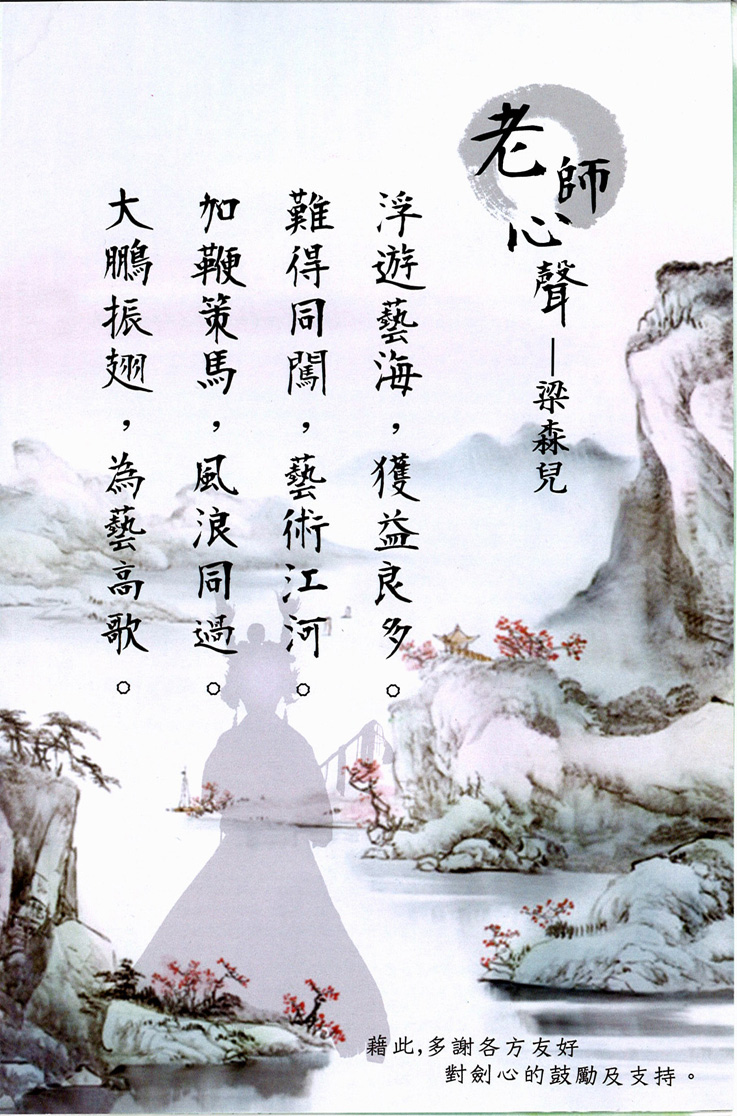 老師心聲—梁森兒
浮遊藝海，獲益良多。
難得同闖，藝術江河。
加鞭策馬，風浪同過。
大鵬振翅，為藝高歌。
藉此,多謝各方友好
對劍心的鼓勵及支持。